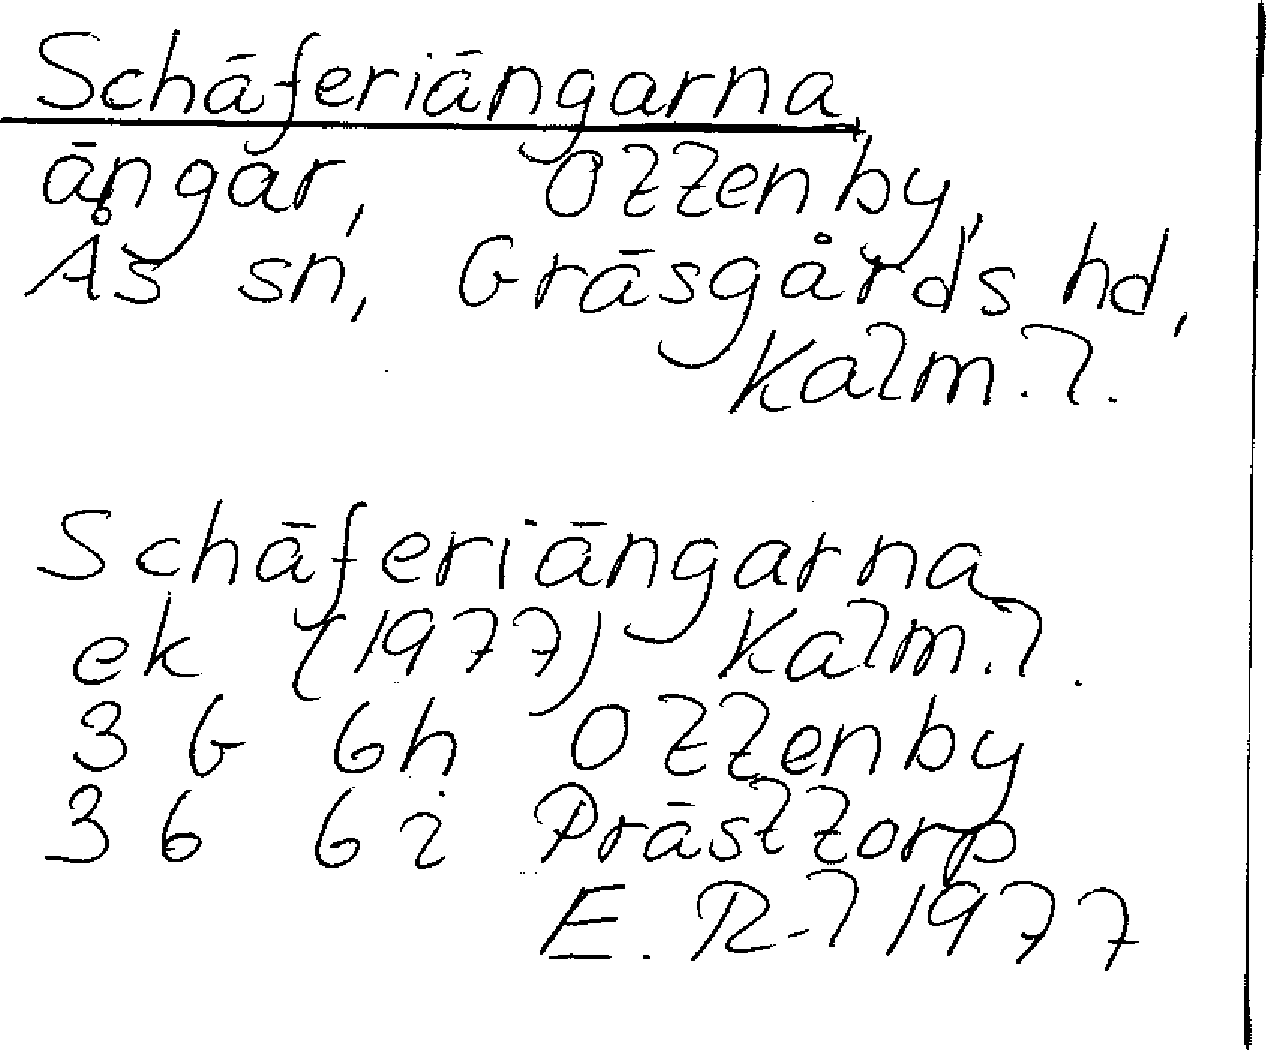 Schäferiängarna
ängar, Ottenby,
Ås sn, Gräsgårds hd,
Kalm.l.
Schäferiängarna
ek (1977) Kalm.l.
3 G 6h Ottenby
3 G 6i Prästtorp
E. R-l 1977